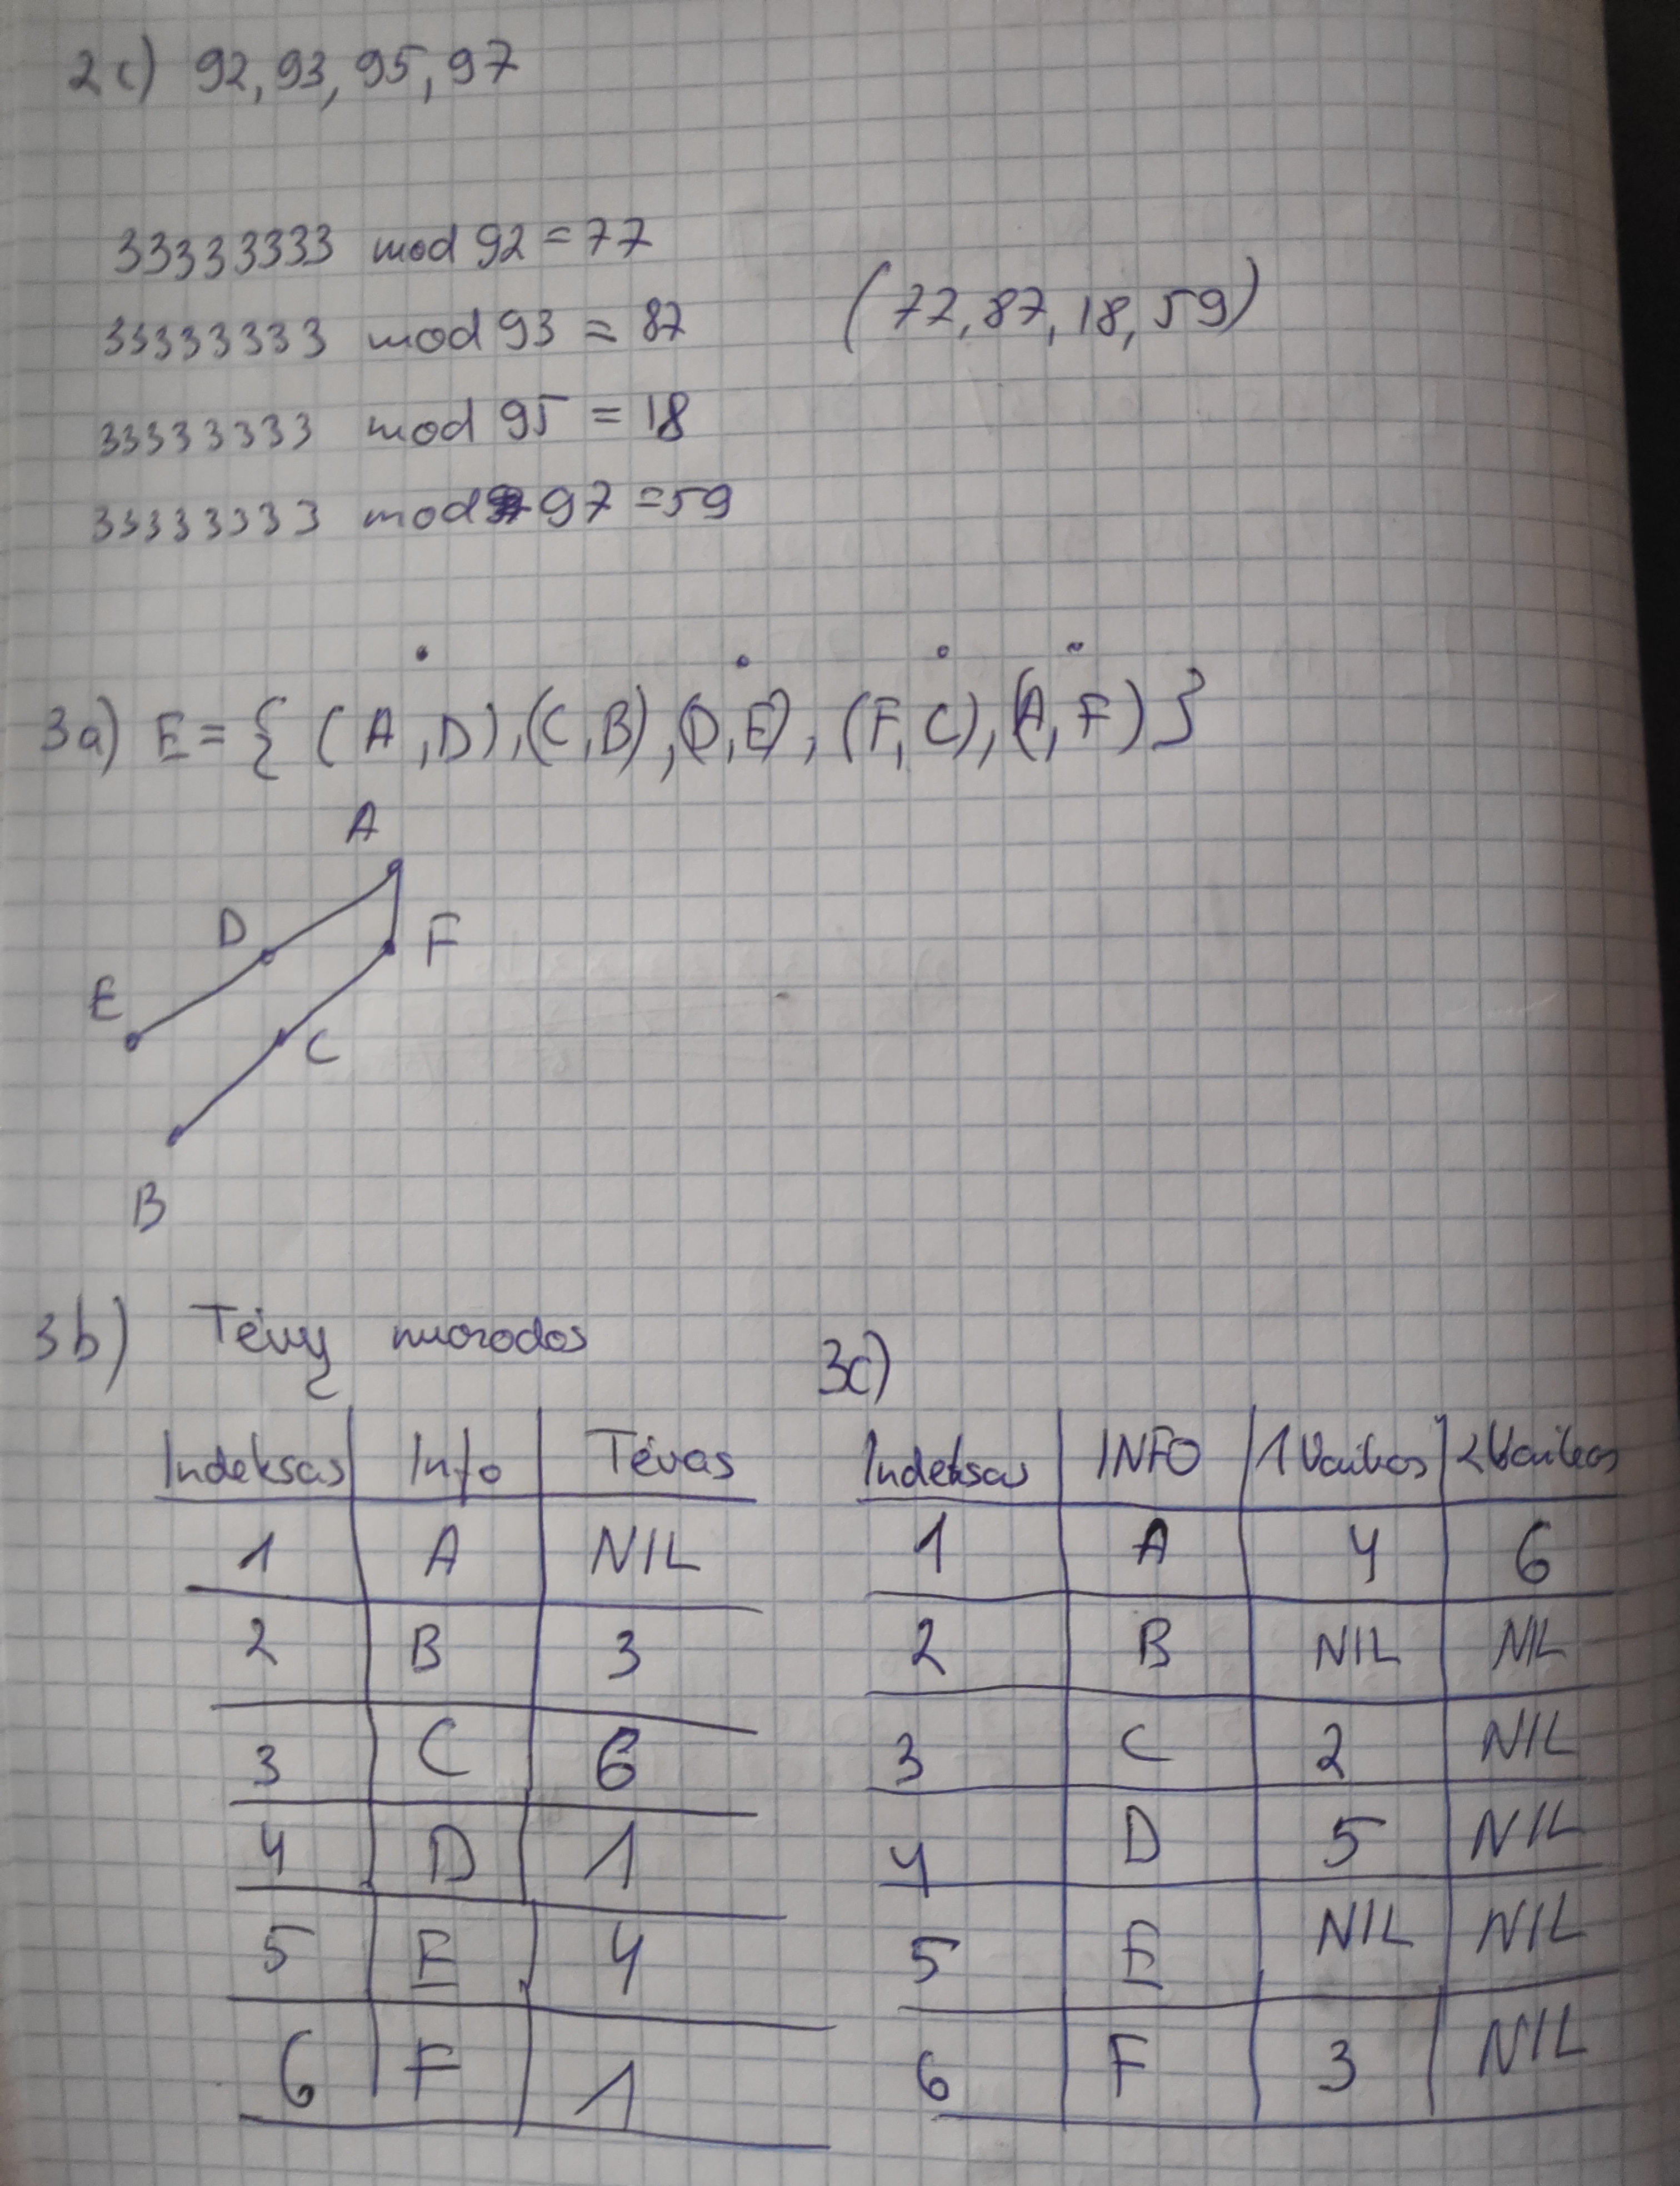 2c) 92, 93, 95, 97
33333333 mod 92 = 77
33333333 mod 93 = 87
(77, 87, 18, 59)
33333333 mod 95 = 18
33333333 mod 97 = 59
3a) E = { (A, D), (C, B), (D, E), (F, C), (A, F) }
A
D
F
E
C
B
3b) Tėvų nuorodos
3c)
Indeksas Info Tėvas
1 A NIL
2 B 3
3 C 6
4 D 1
5 E 4
6 F 1
Indeksas INFO 1 Vaikas 2 Vaikas
1 A 4 6
2 B NIL NIL
3 C 2 NIL
4 D 5 NIL
5 E NIL NIL
6 F 3 NIL